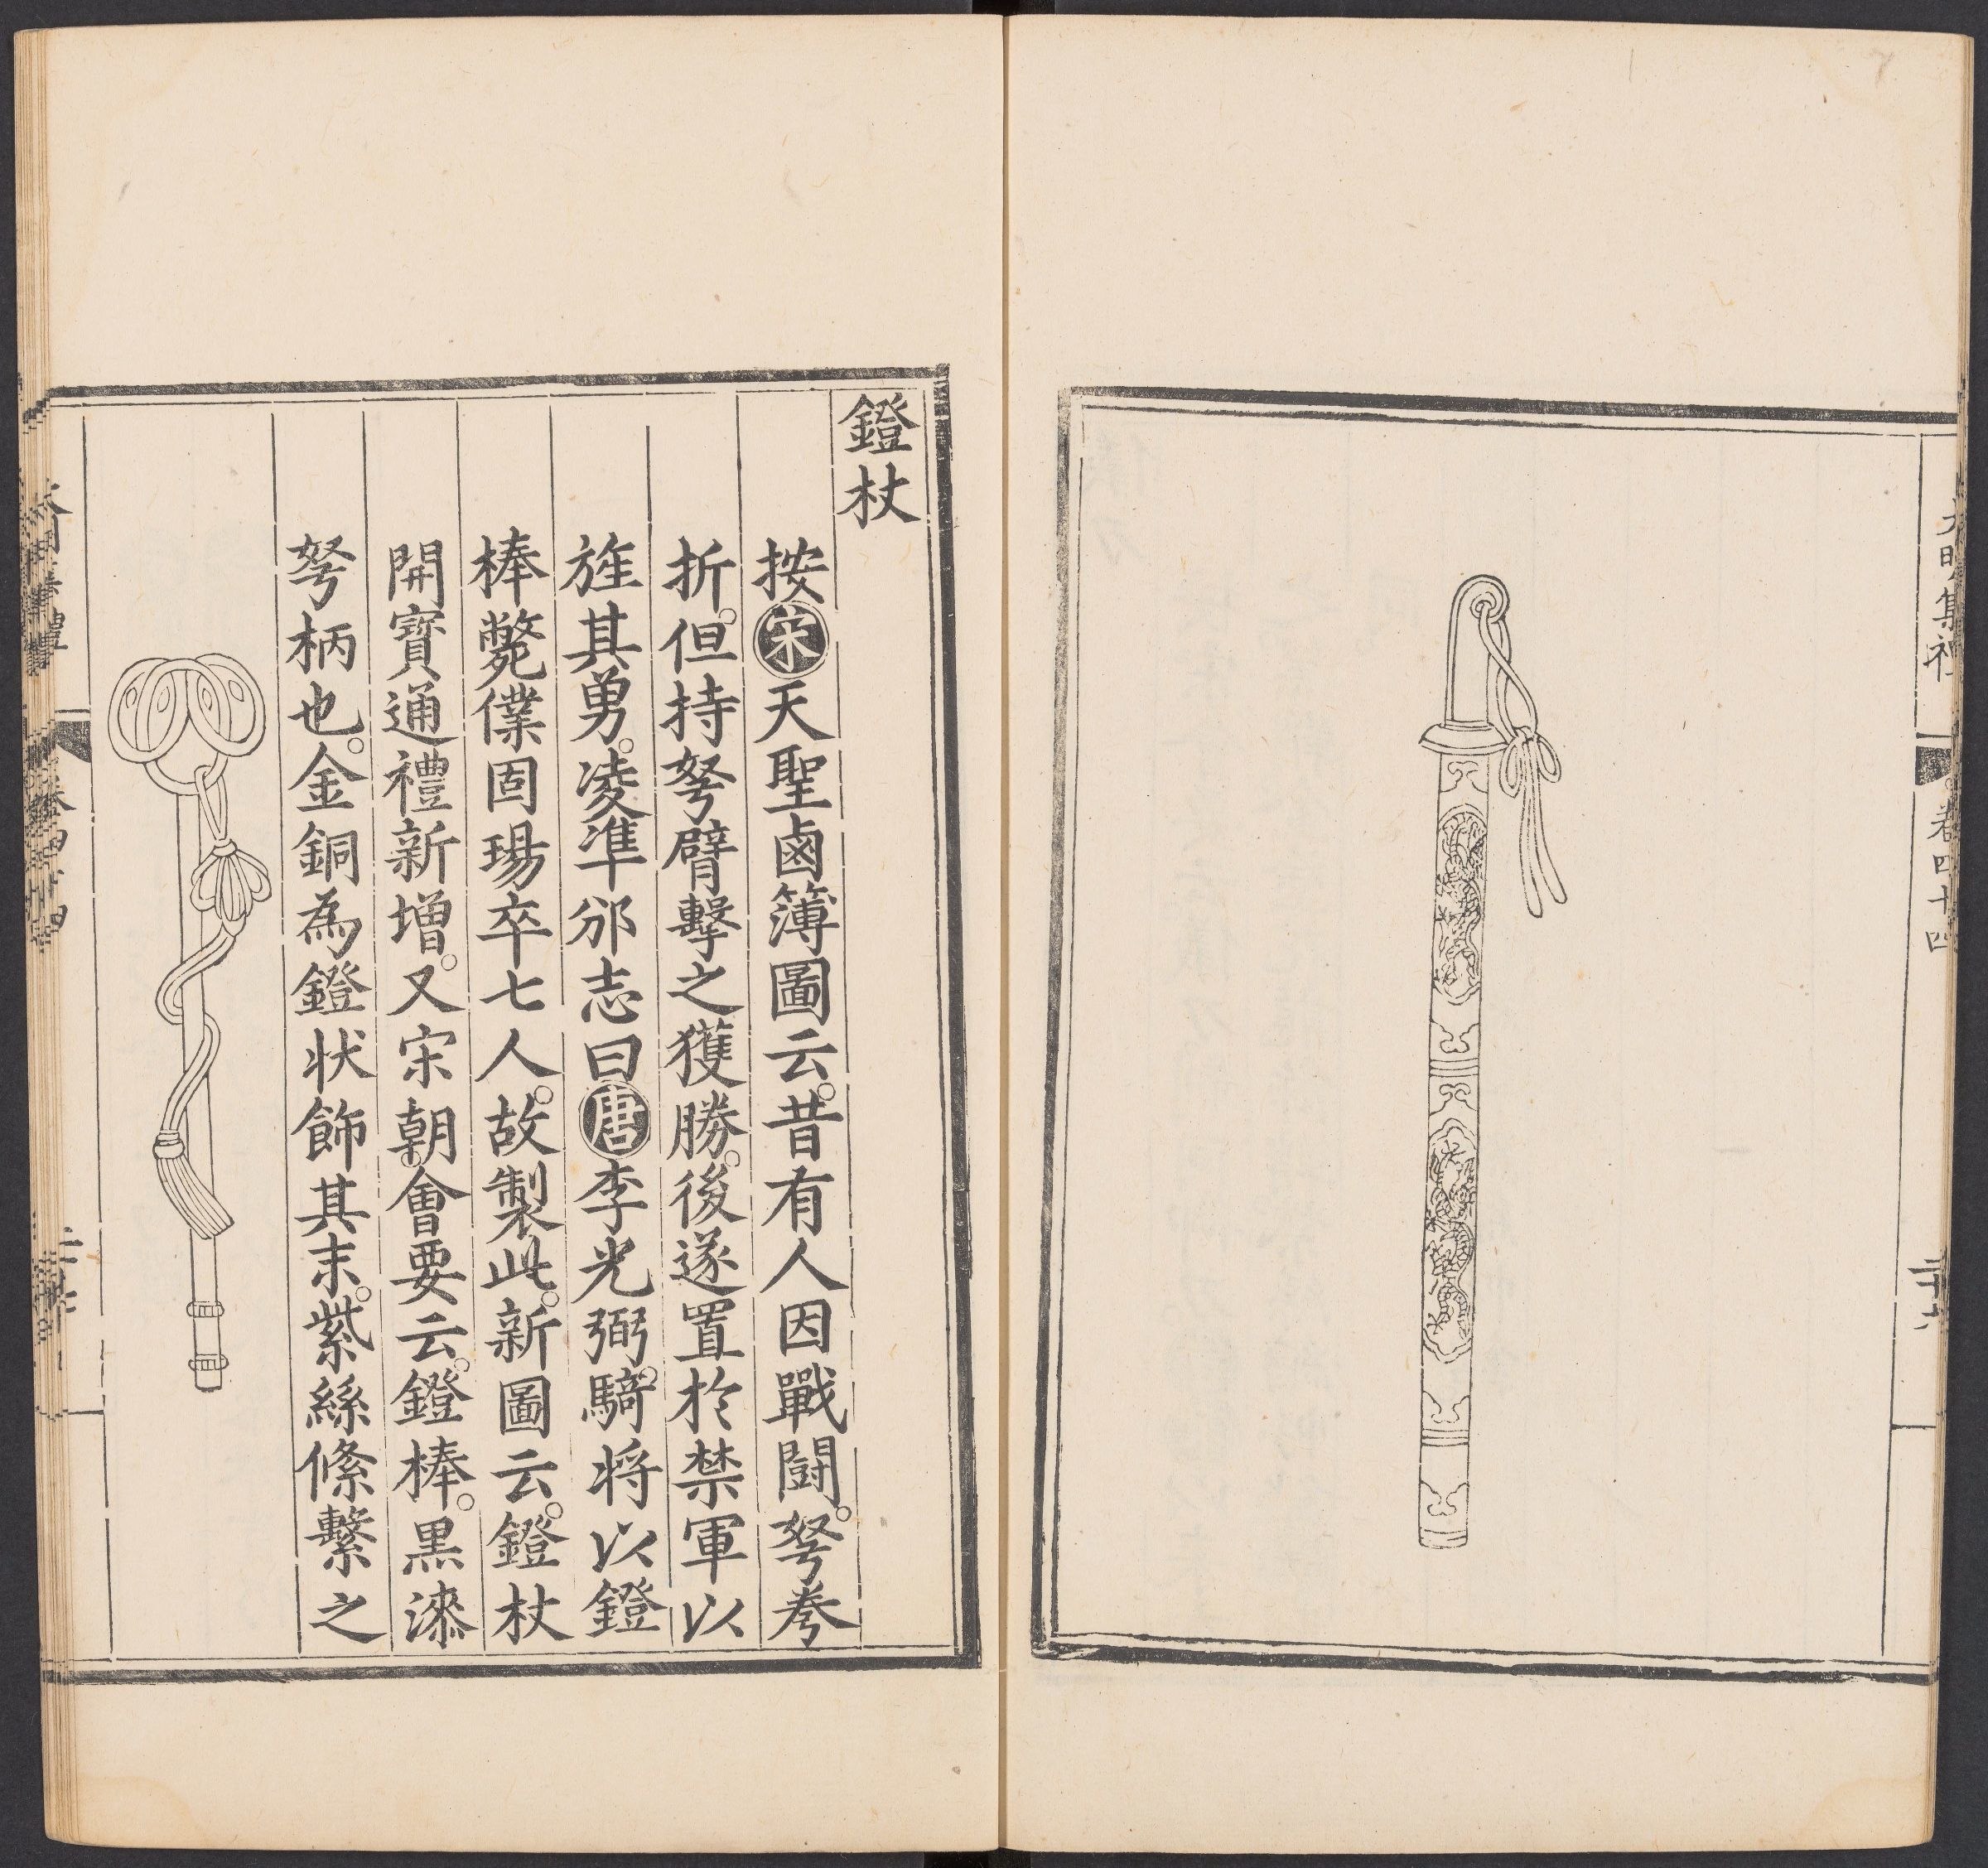 大明集禮
卷四十四
鐙杖
按宋天聖鹵簿圖云。昔有人因戰鬪。弩桊
折。但持弩臂擊之獲勝。後遂置於禁軍以
旌其勇。凌準邠志曰唐李光弼。騎將以鐙
棒斃僕固瑒卒七人。故製此。新圖云。鐙杖
開寳通禮新增。又宋朝。會要云。鐙棒。黒漆
弩柄也。金銅為鐙狀飾其末。紫絲絛繫之
卷四十四